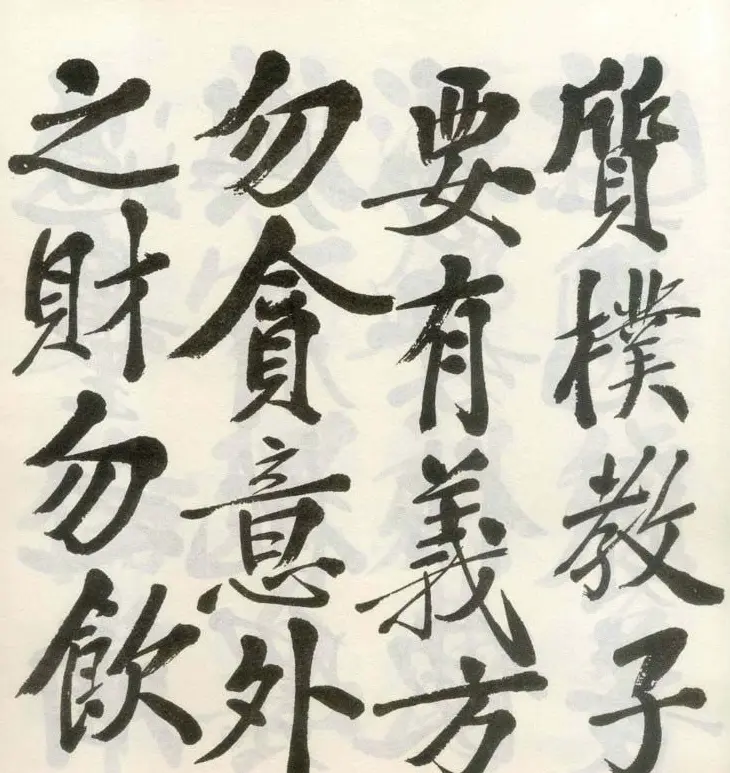 質樸教子
要有義方
勿貪意外
之財勿飲